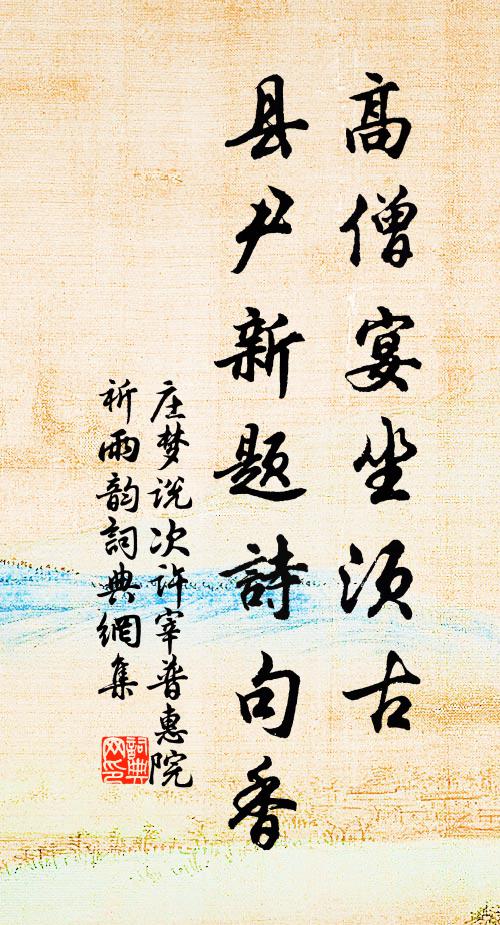 高僧宴坐须古
县尹新题詩句香
庄梦说次许宰普惠院
祈雨韵詞典網集
詞典网印